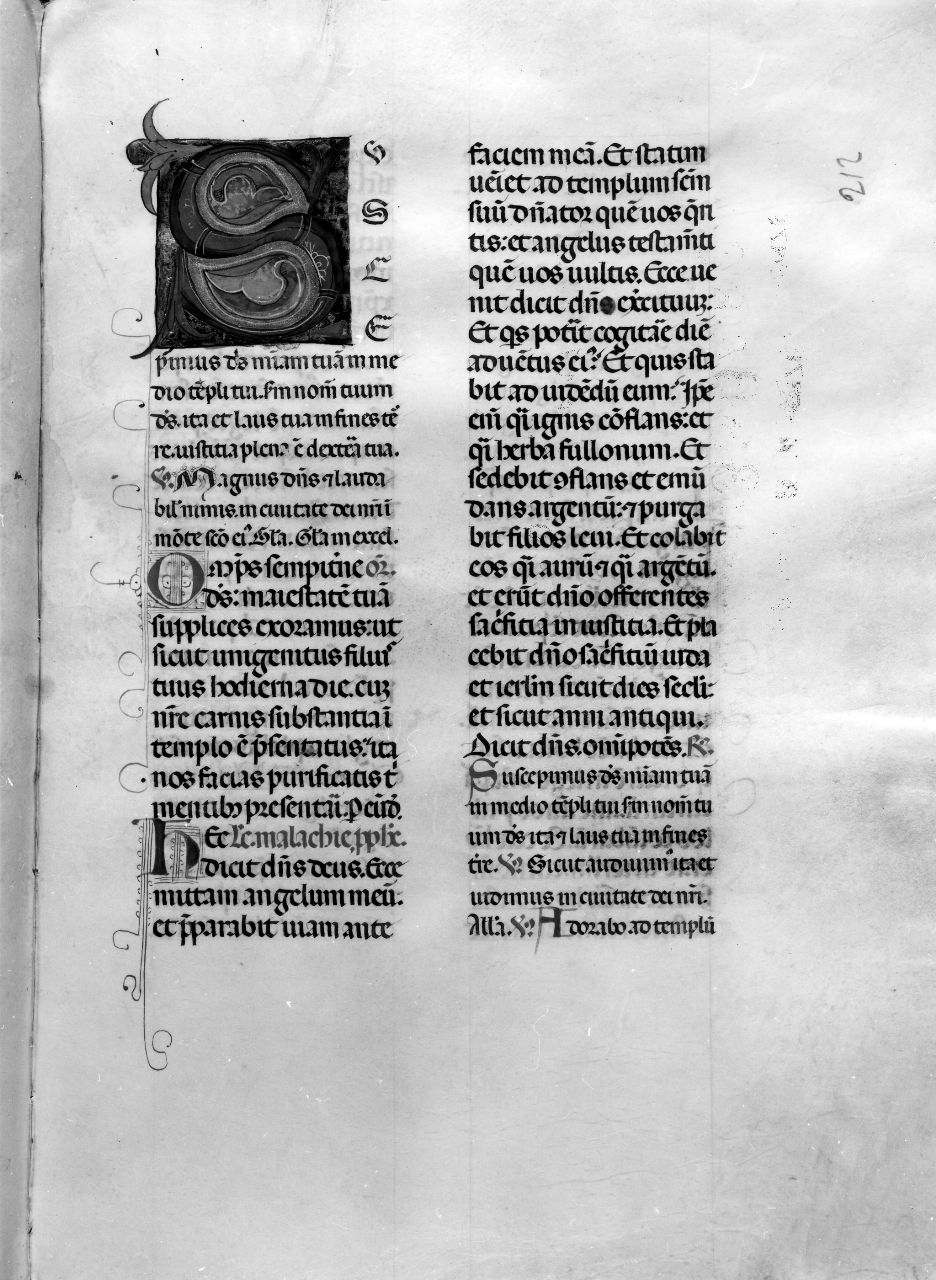 S U
S
C
E
pimus d̅s mi̅am tua̅ in me
dio te̅pli tui. s̅m nom̅ tuum
d̅s. ita et laus tua in fines te̅
re. iusticia plena e̅ dextera̅ tua.
V. Magnus dn̅s ⁊ lauda
bil' nimis. in ciuitate dei nr̅i i̅
mo̅te sc̅o ei'. Gl'a. Gl'a in excel.
Omp̅s sempit̅ne or̅.
d̅s: maiestate̅ tua̅
supplices exoramus: ut
sicut unigenitus filius
tuus hodierna die. cu̅
nr̅e carnis substantia i̅
templo e̅ p̅sentatus: ita
nos facias purificatis t'
mentibꝫ presentari. P eu̅d̅.
Hec Le. malachie pph̅e.
dicit dn̅s deus. Ecce
mittam angelum meu̅.
et p̅parabit uiam ante
faciem mea̅. Et statim
uei̅et ad templum sc̅m
suu̅ dn̅ator que̅ uos q̅ri
tis: et angelus testam̅ti
que̅ uos uultis. Ecce ue
nit dicit dn̅s exe̅ituuꝫ:
Et q̅s pot̅it cogita̅e die̅
aduе̅tus ei'? Et quis sta
bit ad uide̅du̅ eum? Ip̅e
eni̅ q̅i ignis co̅flans: et
q̅i herba fullonum. Et
sedebit ꝯflans et emu̅
dans argentu̅: ⁊ purga
bit filios leui. Et colabit
eos q̅i auru̅ ⁊ q̅i arge̅tu̅.
et eru̅t dn̅o offerentes
sac̅ficia in iusticia. Et pla
cebit dn̅o sac̅ficiu̅ iuda
et ierl̅m sicut dies sec̅li:
et sicut anni antiqui.
Dicit dn̅s. omi̅pote̅s. R.
Suscepimus d̅s mi̅am tua̅
in medio te̅pli tui s̅m nom̅ tu
um d̅s ita ⁊ laus tua in fines
t̅re. V. Sicut audiuim' ita et
uidimus in ciuitate dei nr̅i.
All'a. V. Adorabo ad templu̅
212